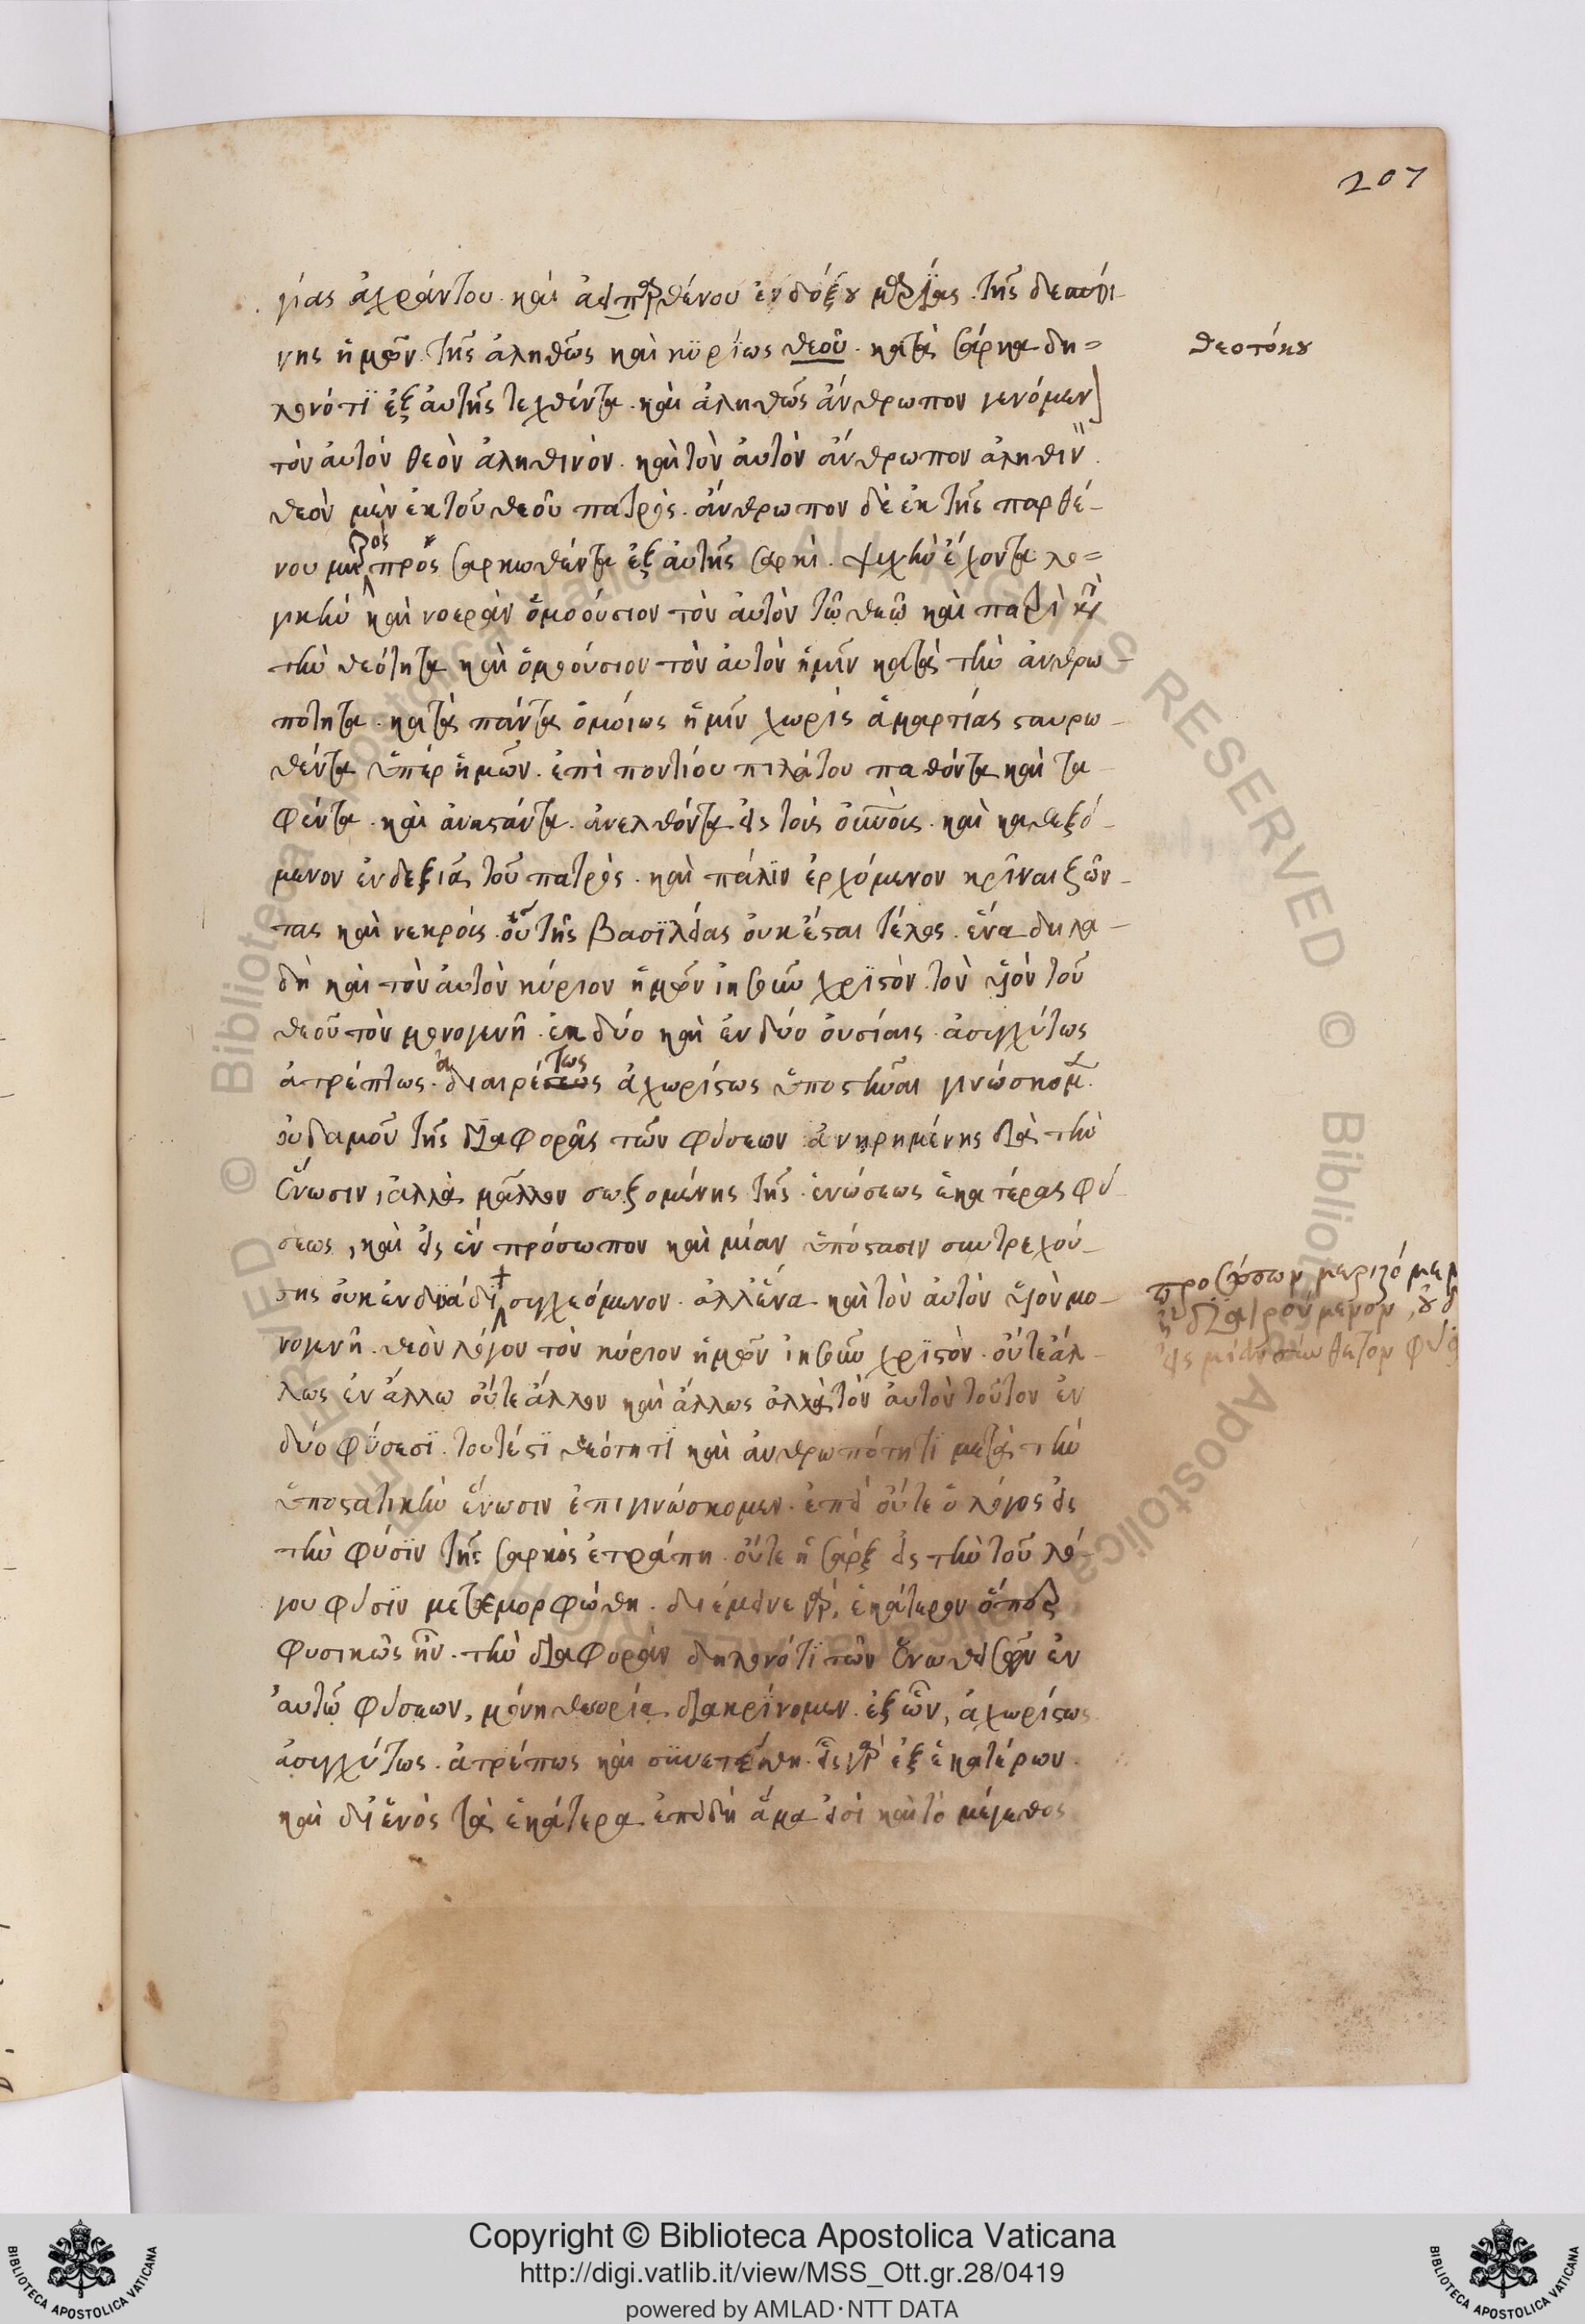 207
γίας ἀχράντου. καὶ ἀειπαρθένου ἐνδόξου μαρίας. τῆς δεσποί-
νης ἡμῶν. τῆς ἀληθῶς καὶ κϋρίως θεοῦ. κατὰ σάρκα δη=
θεοτόκου
λονότϊ ἐξ ἀυτῆς τεχθέντα. καὶ ἀληθῶς ἄνθρωπον γενόμεν
τὸν ἀυτὸν θεὸν ἀληθινὸν. καὶ τὸν ἀυτὸν ἄνθρωπον ἀληθιν
θεὸν μὲν ἐκ τοῦ θεοῦ πατρὸς. ἄνθρωπον δὲ ἐκ τῆς παρθέ-
νου μητρὸς σαρκωθέντα ἐξ ἀυτῆς σαρκὶ. ψυχὴν ἔχοντα λο=
γικὴν καὶ νοερὰν ὁμοούσιον τὸν ἀυτὸν τῷ θεῷ καὶ πατρὶ κατὰ
τὴν θεότητα καὶ ὁμοούσιον τὸν ἀυτὸν ἡμῖν κατὰ τὴν ἀνθρω-
πότητα. κατὰ πάντα ὁμοίως ἡμῖν χωρὶς ἁμαρτίας σταυρω-
θέντα ὑπὲρ ἡμῶν. ἐπὶ ποντίου πιλάτου παθόντα καὶ τα-
φέντα. καὶ ἀναστάντα. ἀνελθόντα εἰς τοὺς οὐνοὺς. καὶ καθεζό-
μενον ἐν δεξιᾷ τοῦ πατρὸς. καὶ πάλϊν ἐρχόμενον κρῖναι ζῶν-
τας καὶ νεκροὺς. οὗ τῆς βασϊλείας ὀυκ ἔσται τέλος. ἕνα δηλα-
δὴ καὶ τὸν ἀυτὸν κύριον ἡμῶν ἰησοῦν χρϊστὸν. τὸν ὑϊὸν τοῦ
θεοῦ τὸν μονογενῆ. ἐκ δύο καὶ ἐν δύο ὀυσίαις. ἀσυγχύτως
ἀτρέπτως. ἀδιαιρέτως ἀχωρίστως ὑποστῆναι γινώσκομ.
ὀυδαμοῦ τῆς διαφορᾶς τῶν φύσεων ἀνῃρημένης διὰ τὴν
ἕνωσιν, ἀλλὰ μᾶλλον σωζομένης τῆς ἑνώσεως ἑκατέρας φύ-
σεως, καὶ εἰς ἓν πρόσωπον καὶ μίαν ὑπόστασιν συντρεχού-
σης ὀυκ ἐν δυάδϊ συγχεόμενον. ἀλλ᾽ ἕνα καὶ τὸν ἀυτὸν ὑϊὸν μο-
προσώπων μεριζόμεν
ἢ διαιρούμενον, οὐδ
εἰς μίαν σύνθετον φύσ
νογενῆ. θεὸν λόγον τὸν κύριον ἡμῶν ἰησοῦν χρϊστὸν. οὔτε ἄλ-
λως ἐν ἄλλω οὔτε ἄλλον καὶ ἄλλως ἀλλὰ τὸν ἀυτὸν τοῦτον ἐν
δύο φύσεσϊ. τουτέστϊ θεότητϊ καὶ ἀνθρωπότητϊ μετὰ τὴν
ὑποστατικὴν ἕνωσιν ἐπιγινώσκομεν. ἐπεὶ οὔτε ὁ λόγος εἰς
τὴν φύσϊν τῆς σαρκὸς ἐτράπη. οὔτε ἡ σὰρξ εἰς τὴν τοῦ λό-
γου φύσϊν μετεμορφώθη. διέμεινε γὰρ, ἑκάτερον ὅπερ
φυσικῶς ἦν. τὴν διαφορὰν δηλονότϊ τῶν ἑνωθεισῶν ἐν
ἀυτῷ φύσεων, μόνῃ θεορία διακρίνομεν. ἐξ ὧν, ἀχωρίστως
ἀσυγχύτως. ἀτρέπως καὶ συνετέθη. εἷς γὰρ ἐξ ἑκατέρων.
καὶ δι ἑνὸς τὰ ἑκάτερα ἐπειδὴ ἅμα εἰσὶ καὶ τὸ μέγεθος
Copyright © Biblioteca Apostolica Vaticana
http://digi.vatlib.it/view/MSS_Ott.gr.28/0419
powered by AMLAD·NTT DATA